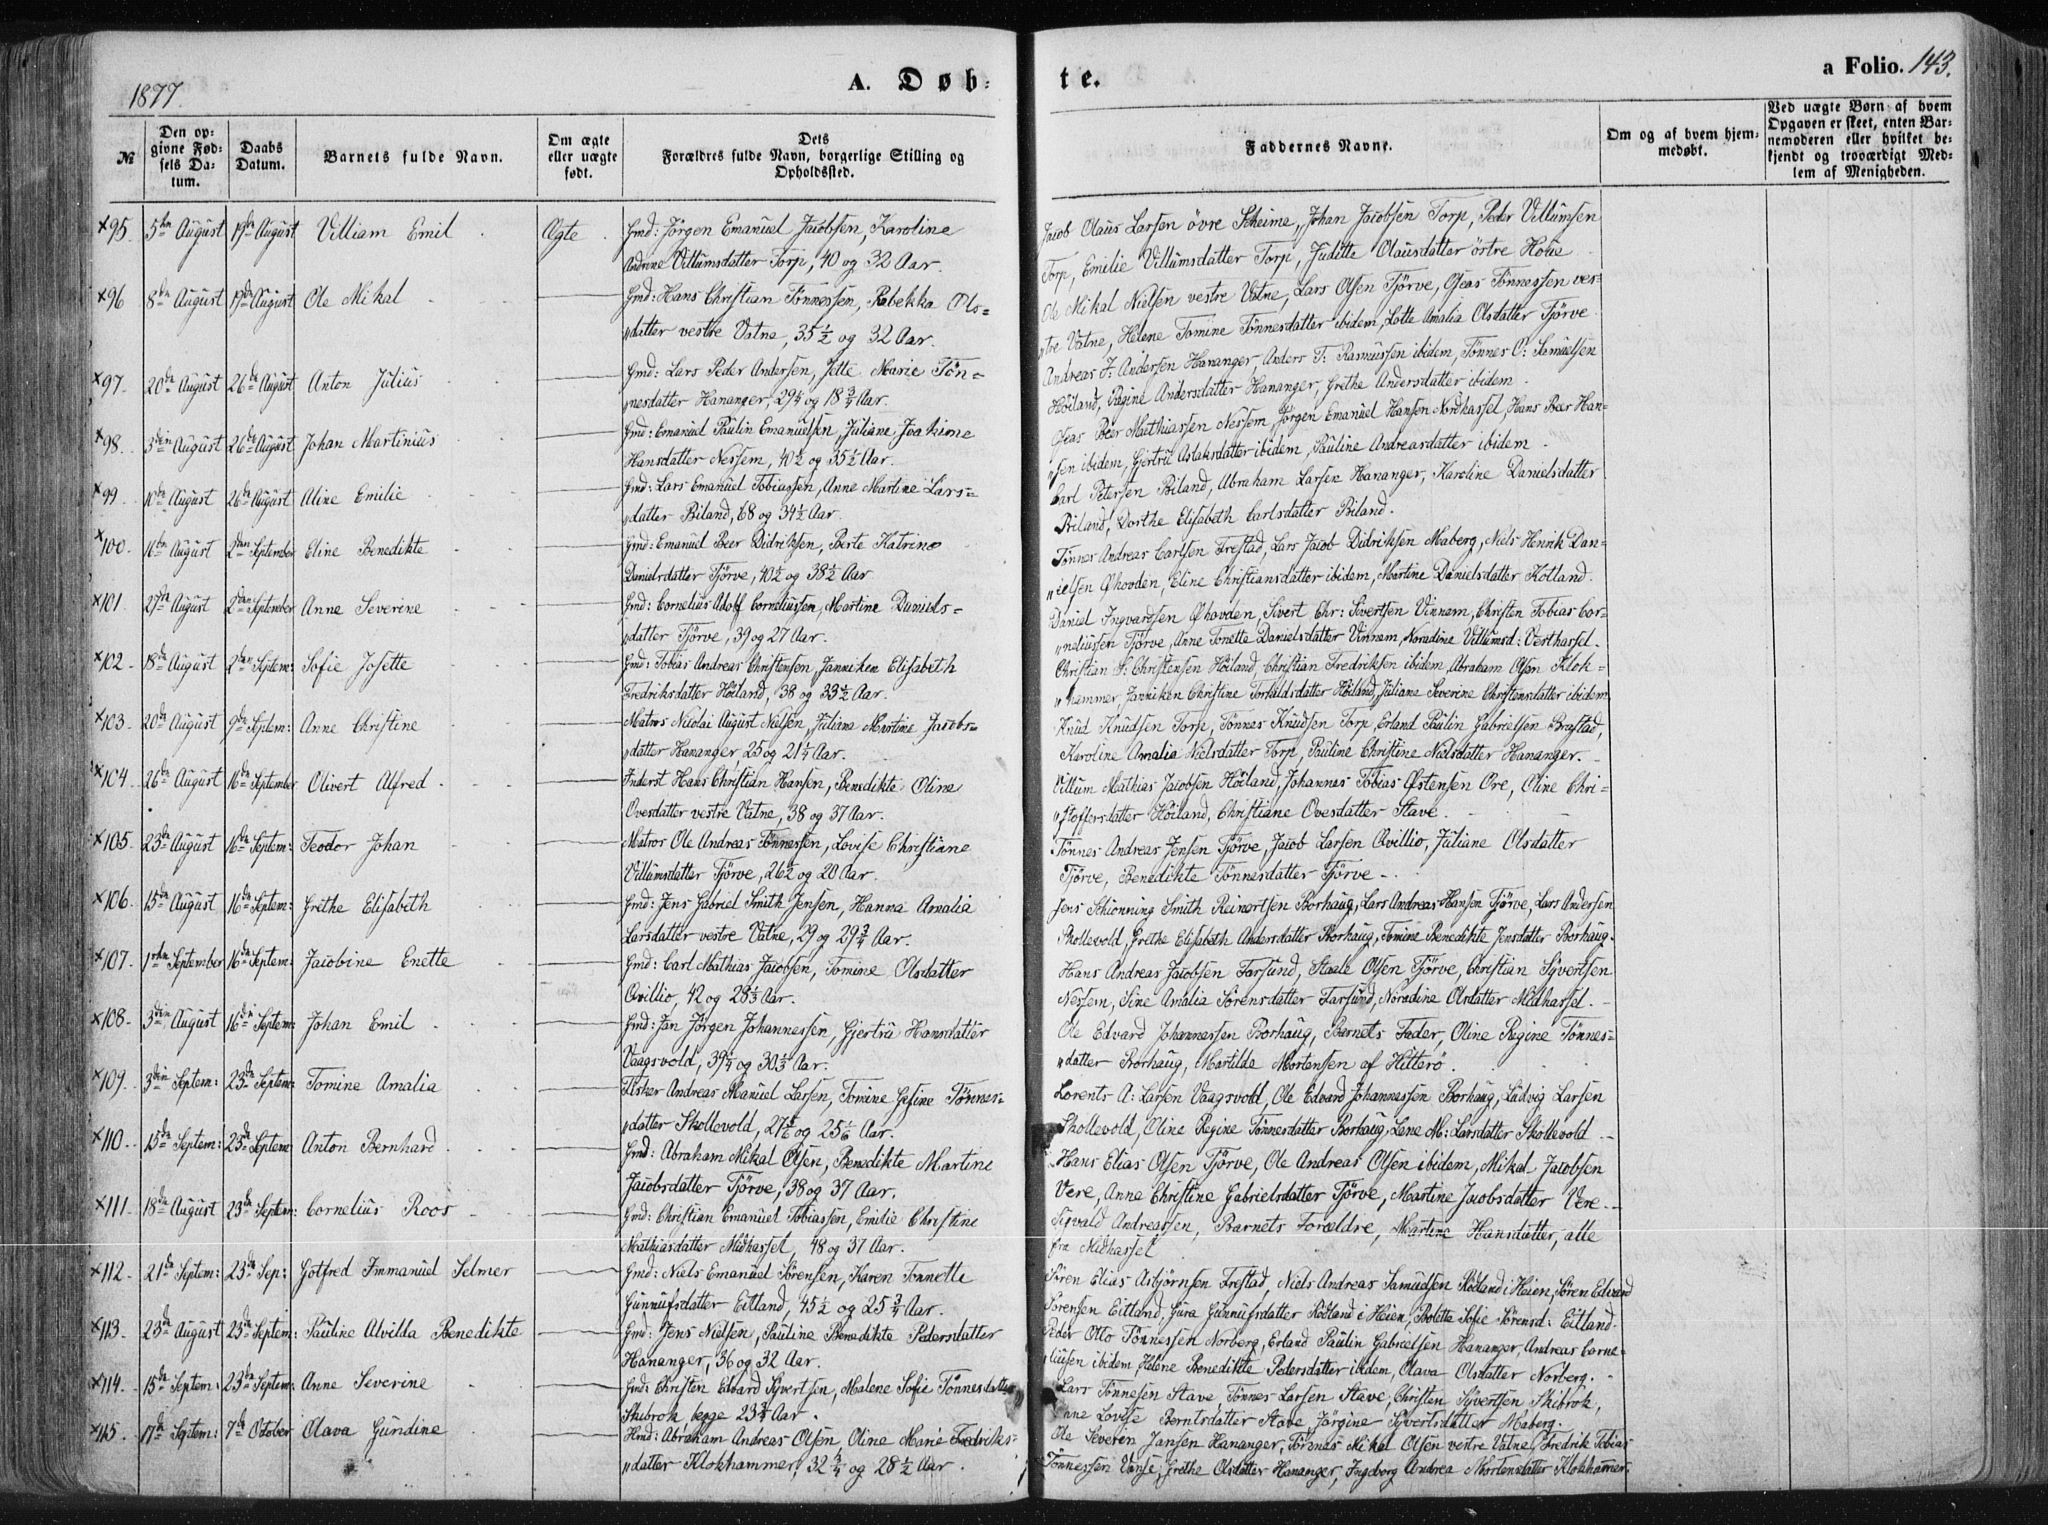 1877.
A. Døb-
te.
a Folio. 143.
№
Den op-
givne Fød-
sels Da-
tum.
Daabs
Datum.
Barnets fulde Navn.
Om ægte
eller uægte
født.
Dets
Forældres fulde Navn, borgerlige Stilling og
Opholdssted.
Faddernes Navne.
Om og af hvem hjem-
medøbt.
Ved uægte Børn af hvem
Opgaven er skeet, enten Bar-
nemoderen eller hvilket be-
kjendt og troværdigt Med-
lem af Menigheden.
×95. 5te August 19de August Villiam Emil Ægte Gmd: Jörgen Emanuel Jacobsen, Karoline
Andrine Villumsdatter Torp, 40 og 32 Aar.
Jacob Olaus Larsen övre Skeime, Johan Jacobsen Torp, Peder Villumsen
Torp, Emilie Villumsdatter Torp, Juditte Olausdatter östre Houe
×96 8de August 19de August Ole Mikal Gmd: Hans Christian Tönnessen, Rebekka Ols-
datter vestre Vatne, 35½ og 32 Aar.
Ole Mikal Nielsen vestre Vatne, Lars Olsen Tjörve, Oseas Tönnessen ves-
tre Vatne, Helene Tomine Tönnesdatter ibidem, Lotte Amalia Olsdatter Tjörve
×97. 20de August 26de August Anton Julius Gmd: Lars Peder Andersen, Jette Marie Tön-
nesdatter Hananger, 29¼ og 18¾ Aar.
Andreas F. Andersen Hananger, Anders T. Rasmussen ibidem, Tönnes O: Samuelsen
Höiland, Regine Andersdatter Hananger, Grethe Andersdatter ibidem.
×98. 3die August 26de August Johan Martinius Gmd: Emanuel Paulin Emanuelsen, Juliane Joakime
Hansdatter Nessem, 40½ og 35½ Aar.
Oseas Beer Mathiassen Nessem, Jörgen Emanuel Hansen Nordhassel, Hans Beer Han-
sen ibidem, Gjertrü Aslaksdatter ibidem, Pauline Andreasdatter ibidem.
×99. 10de August 26de August Aline Emilie Gmd: Lars Emanuel Tobiassen, Anne Martine Lars-
datter Biland, 68 og 34½ Aar.
Carl Petersen Biland, Abraham Larsen Hananger, Karoline Danielsdatter
Biland, Dorthe Elisabeth Carlsdatter Biland.
×100. 16de August 2den September Eline Benedikte Gmd: Emanuel Beer Didriksen, Berte Katrine
Danielsdatter Tjörve, 40½ og 38½ Aar.
Tönnes Andreas Carlsen Frestad, Lars Jacob Didriksen Maberg, Niels Henrik Dan-
ielsen Öhovden, Eline Christiansdatter ibidem, Martine Danielsdatter Kolland.
×101. 27de August 2den September Anne Severine Gmd: Cornelius Adolf Corneliussen, Martine Daniels-
datter Tjörve, 39 og 27 Aar.
Daniel Ingvartsen Öhovden, Sivert Chr: Sivertsen Vinnem, Christen Tobias Cor-
neliussen Tjörve, Anne Tonette Danielsdatter Vinnem, Noradine Villumsd: Vesthassel.
×102. 18de August 2den Septem: Sofie Josette Gmd: Tobias Andreas Christensen, Janniken Elisabeth
Fredriksdatter Höiland, 38 og 33½ Aar.
Christian F. Christensen Höiland, Christian Fredriksen ibidem, Abraham Olsen Klok-
hammer, Janniken Christine Torfuldsdatter Höiland, Juliane Severine Christensdatter ibidem.
×103. 20de August 9de Septem: Anne Christine Matros Nicolai August Nielsen, Juliane Martine Jacobs-
datter Hananger 25 og 21¼ Aar.
Knud Knudsen Torp, Tönnes Knudsen Torp, Erland Paulin Gabrielsen Brastad,
Karoline Amalia Nielsdatter Torp, Pauline Christine Nielsdatter Hananger.
×104. 26de August 16de September Olivert Alfred Inderst Hans Christian Hansen, Benedikte Oline
Ovesdatter vestre Vatne, 38 og 37 Aar.
Villum Mathias Jacobsen Höiland, Johannes Tobias Östensen Ore, Oline Chri-
stoffersdatter Höiland, Christiane Ovesdatter Stave.
×105. 23de August 16de Septem: Teodor Johan Matros Ole Andreas Tönnessen, Lovise Christiane
Villumsdatter Tjörve, 26½ og 20 Aar.
Tönnes Andreas Jensen Tjörve, Jacob Larsen Qvillio, Juliane Olsdatter
Tjörve, Benedikte Tönnesdatter Tjörve.
×106. 15de August 16de Septem: Grethe Elisabeth Gmd: Jens Gabriel Smith Jensen, Hanna Amalia
Larsdatter vestre Vatne, 29 og 29¾ Aar.
Jens Schionning Smith Reinertsen Borhaug, Lars Andreas Hansen Tjörve, Lars Andersen
Skollevold, Grethe Elisabeth Andersdatter Borhaug, Tomine Benedikte Jensdatter Borhaug.
×107. 1ste September 16de Septem: Jacobine Enette Gmd: Carl Mathias Jacobsen, Tomine Olsdatter
Qvillio, 42 og 28⅓ Aar.
Hans Andreas Jacobsen Farsund, Staale Olsen Tjörve, Christian Syvertsen
Nessem, Sine Amalia Sörensdatter Farsund, Noradine Olsdatter Midhassel.
×108. 3die August 16de Septem: Johan Emil Gmd: Jan Jörgen Johannessen, Gjertrü Hansdatter
Vaagsvold, 39¼ og 30⅓ Aar.
Ole Edvard Johannessen Borhaug, Barnets Fader, Oline Regine Tönnes-
datter Borhaug, Martilde Mortensen af Hitterö.
×109. 3die Septem: 23de Septem: Tomine Amalia Fisker Andreas Manuel Larsen, Tomine Gesine Tönnes-
datter Skollevold, 27⅚ og 25⅙ Aar.
Lorents A: Larsen Vaagsvold, Ole Edvard Johannessen Borhaug, Ludvig Larsen
Skollevold, Oline Regine Tönnesdatter Borhaug, Lene M: Larsdatter Skollevold.
×110. 15de Septem: 23de Septem Anton Bernhard Gmd: Abraham Mikal Olsen, Benedikte Martine
Jacobsdatter Tjörve, 38 og 37 Aar.
Hans Elias Olsen Tjörve, Ole Andreas Olsen ibidem, Mikal Jacobsen
Vere, Anne Christine Gabrielsdatter Tjörve, Martine Jacobsdatter Vere.
×111. 18de August 23de Septem: Cornelius Roos Gmd: Christian Emanuel Tobiassen, Emilie Christine
Mathiasdatter Midhassel, 48 og 37 Aar.
Sigvald Andreassen, Barnets Forældre, Martine Hansdatter, alle
fra Midhassel
×112. 21de Septem: 23de Sep: Gotfred Immanuel Selmer Gmd: Niels Emanuel Sörensen, Karen Tonnette
Gunnufsdatter Eitland, 45½ og 25¾ Aar.
Sören Elias Asbjörnsen Frestad, Niels Andreas Samuelsen Rödland i Heien, Sören Edvard
Sörensen Eitland, Gura Gunnufsdatter Rödland i Heien, Bolette Sofie Sörensd: Eitland.
×113. 23de August 23de Septem: Pauline Alvilda Benedikte Gmd: Jens Nielsen, Pauline Benedikte Pedersdatter
Hananger, 36 og 32 Aar.
Peder Otto Tönnessen Norberg, Erland Paulin Gabrielsen Hananger, Andreas Corne-
liussen ibidem, Helene Benedikte Pedersdatter ibidem, Olava Olsdatter Norberg.
×114. 15de Septem: 23de Septem: Anne Severine Gmd: Christen Edvard Syvertsen, Malene Sofie Tönnesdatter
Skibrok begge 23¾ Aar.
Lars Tönnesen Stave, Tönnes Larsen Stave, Christen Syvertsen Skibrok,
Anne Lovise Berntsdatter Stave, Jörgine Syvertsdatter Maberg.
×115. 17de Septem: 7de October Olava Gundine Hmd: Abraham Andreas Olsen, Oline Marie Fredriks-
datter Klokhammer, 32¾ og 28½ Aar.
Ole Severen Jansen Hananger, Tönnes Mikal Olsen vestre Vatne, Fredrik Tobias
Tönnessen Vanse, Grethe Olsdatter Hananger, Ingeborg Andrea Mortensdatter Klokhammer.